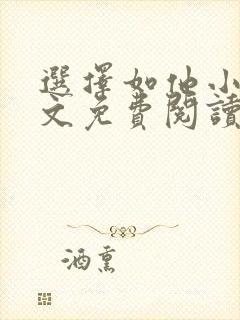 選擇如他小
文免費閱讀
酒熏